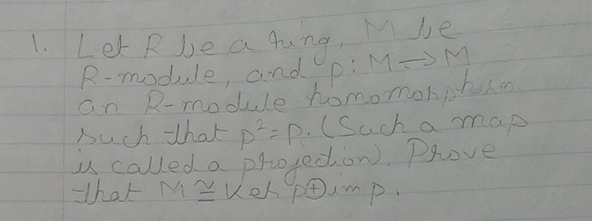 1. Let R be a ring, M be
R-module, and p: M→M
an R-module homomorphism
such that p²=p. (Such a map
is called a projection). Prove
that M ≅ Ker p⊕im p.